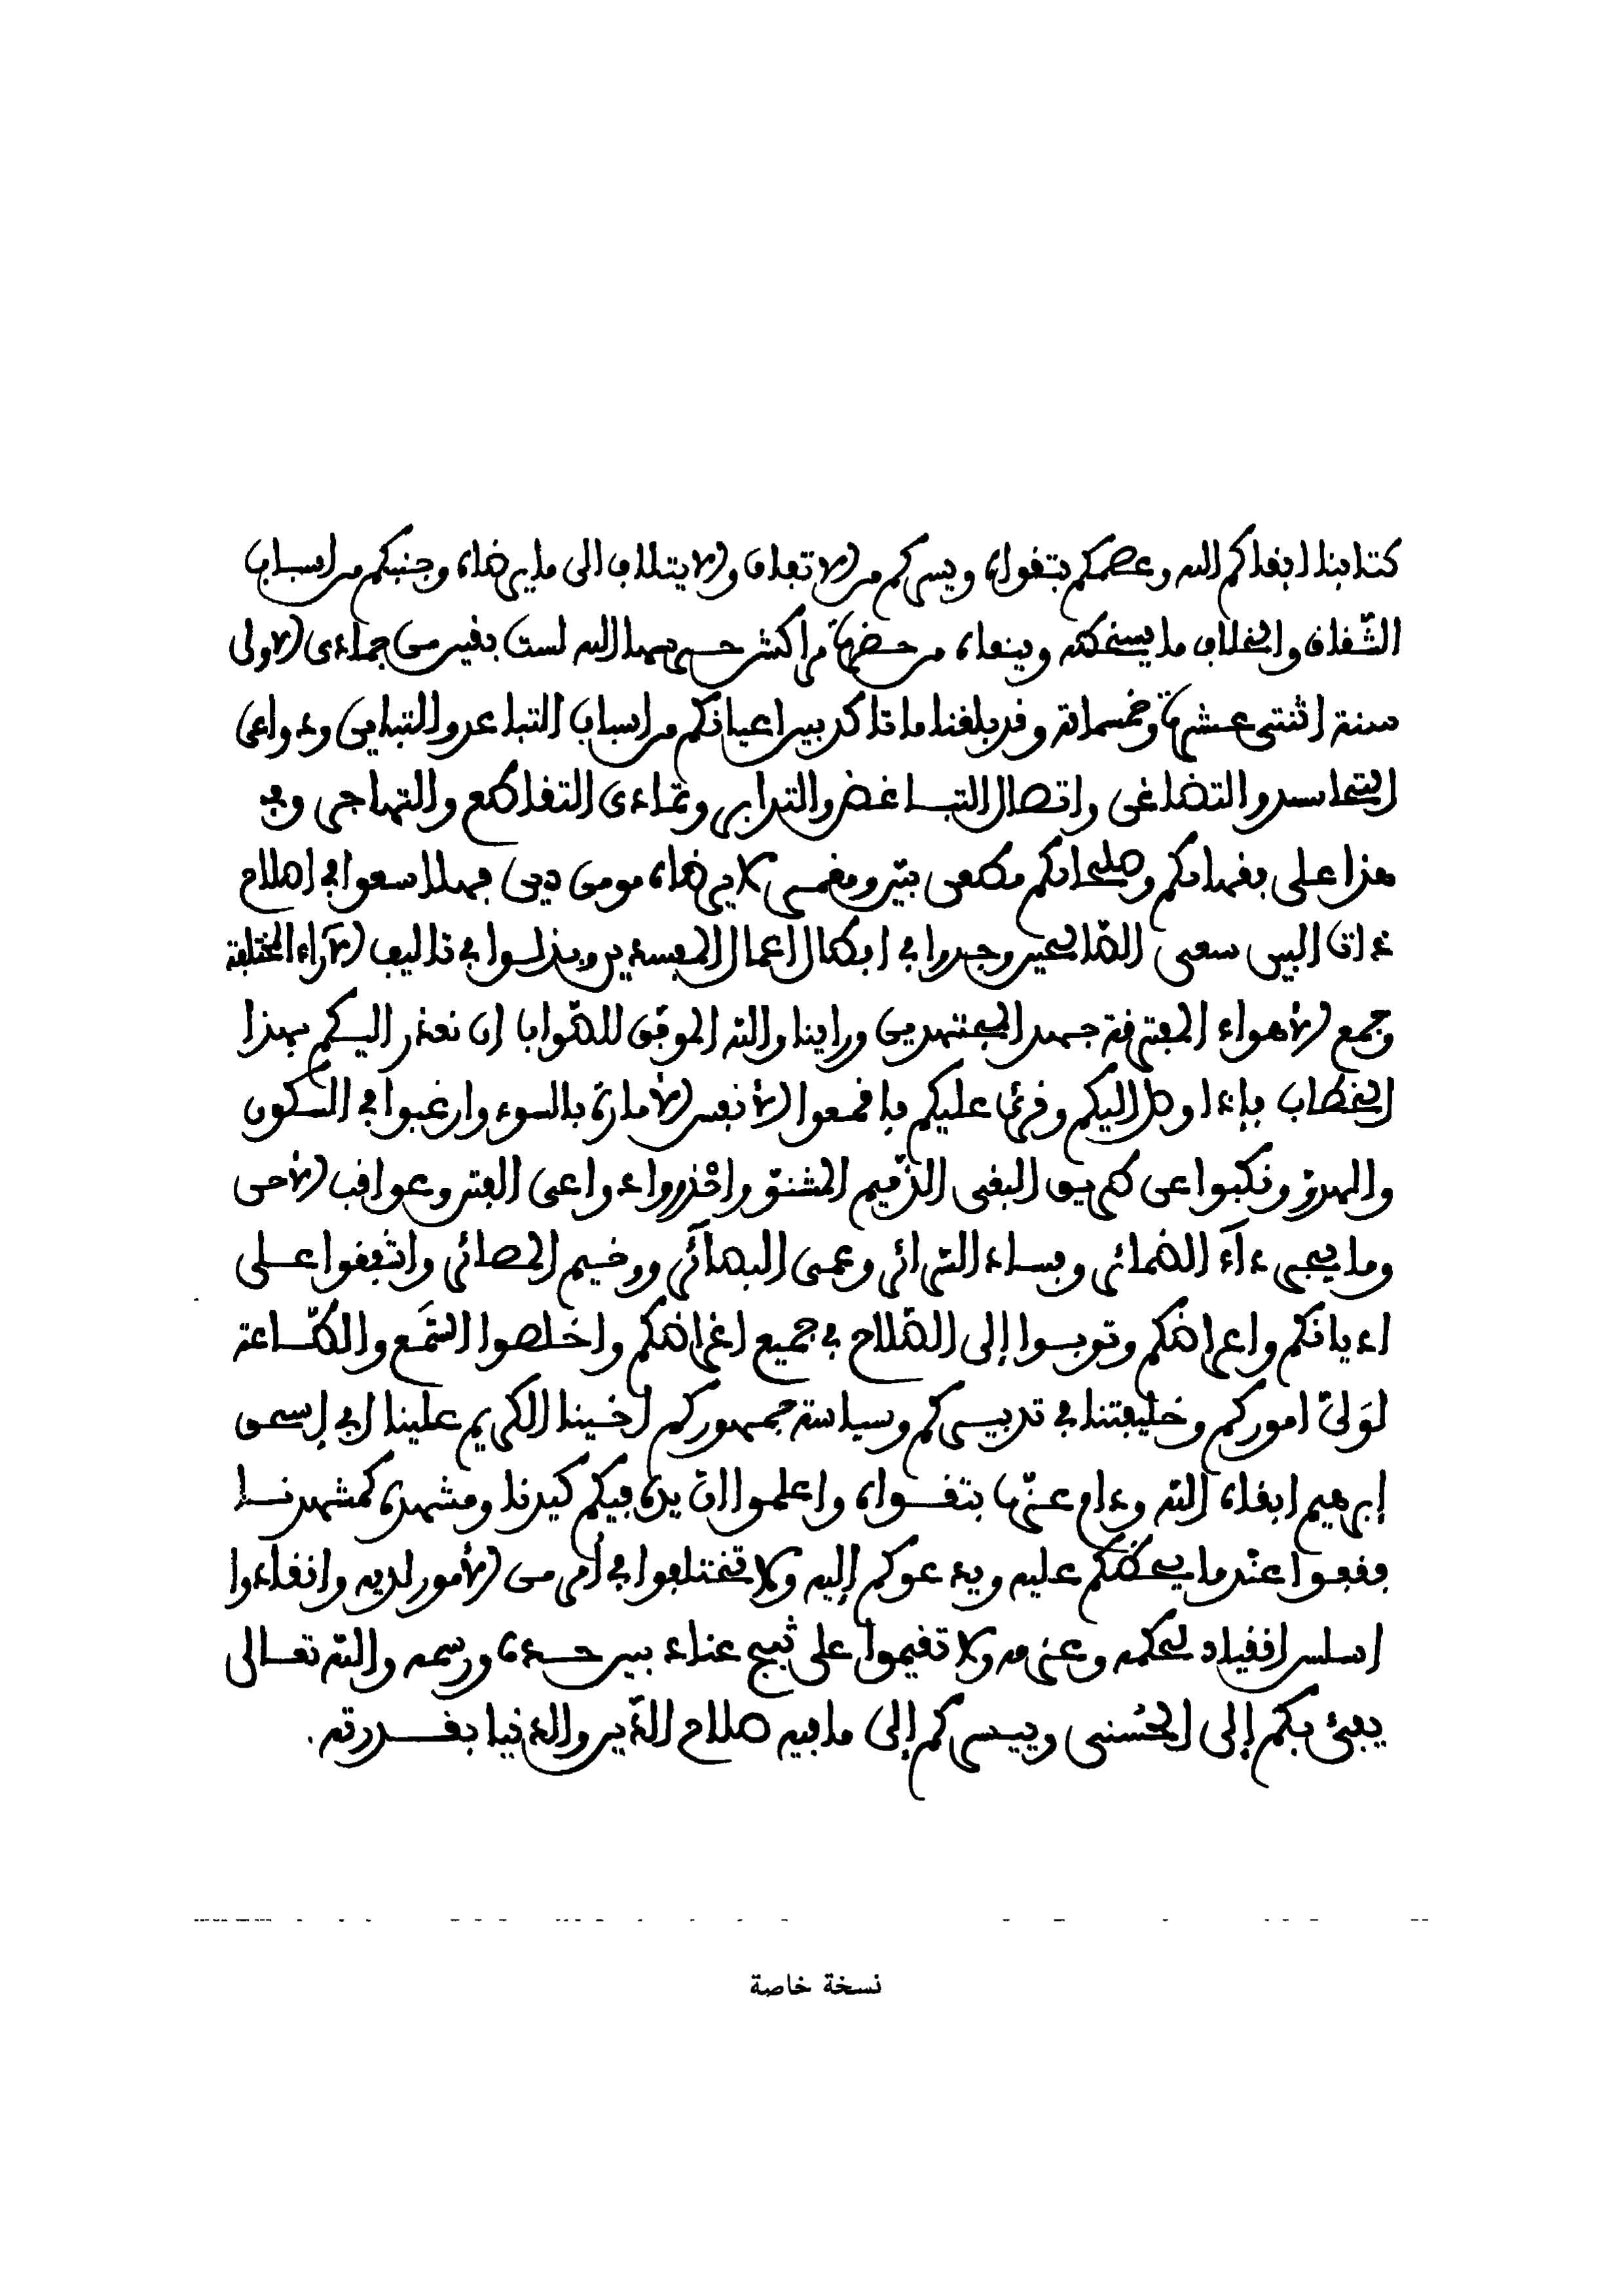 كتابنا ابقاكم الله وعصمكم بتقواه ويسركم من الاتفاق والايتلاف الى ما يرضاه وجنبكم من اسباب
الشّقاق والخلاف ما يسخطه وينعاه من حضرة مراكش حرسها الله لست بقين من جمادى الاولى
سنة اثنتى عشرة وخمسمائة وقد بلغنا ما تاكد بين اعيانكم من اسباب التباعد والتباين ودواعى
التحاسد والتضاغن واتصال التباغض والتدابر وتمادى التقاطع والتهاجر وفي
هذا على فقهائكم وصلحائكم مطعن بيّن ومغمز لا يرضاه مومن دين فهلا سعوا في اصلاح
ذات البين سعى الصّالحين وجدوا في ابطال اعمال المفسدين وبذلوا في تاليف الآراء المختلفة
وجمع الأهواء المفترقة جهد المجتهدين وراينا والله الموفّق للصّواب ان نعذر اليكم بهذا
الخطاب فإذا وصل اليكم وقرئ عليكم فاقمعوا الأنفس الأمارة بالسوء وارغبوا في السكون
والهدوّ ونكبوا عن طريق البغى الذّميم المشنوّ واحْذروا دواعى الفتن وعواقب الأحن
وما يجرى داء الضمائر وفساد السّرائر وعمى البصآئر ووخيم المصائر واشفقوا على
اديانكم واعراضكم وتوبوا إلى الصّلاح في جميع اغراضكم واخلصوا السَّمع والطّاعة
لوَلىّ اموركم وخليفتنا في تدبيركم وسياسة جمهوركم اخينا الكريم علينا ابى إسحق
إبرهيم ابقاه الله ودام عزّه بتقواه واعلموا انّ يده فيكم كيدنا ومشهده كمشهدنا
فقفوا عنْد ما يحضّكم عليه ويدعوكم إليه ولا تختلفوا في أمر من الأمور لديه وانقادوا
اسلس انقياد لحكمه وعزمه ولا تقيموا على ثبج عناد بين حده ورسمه والله تعالى
يفىئ بكم إلى الحُسْنى وييسركم إلى ما فيه صلاح الدّين والدنيا بقدرته.
نسخة خاصة